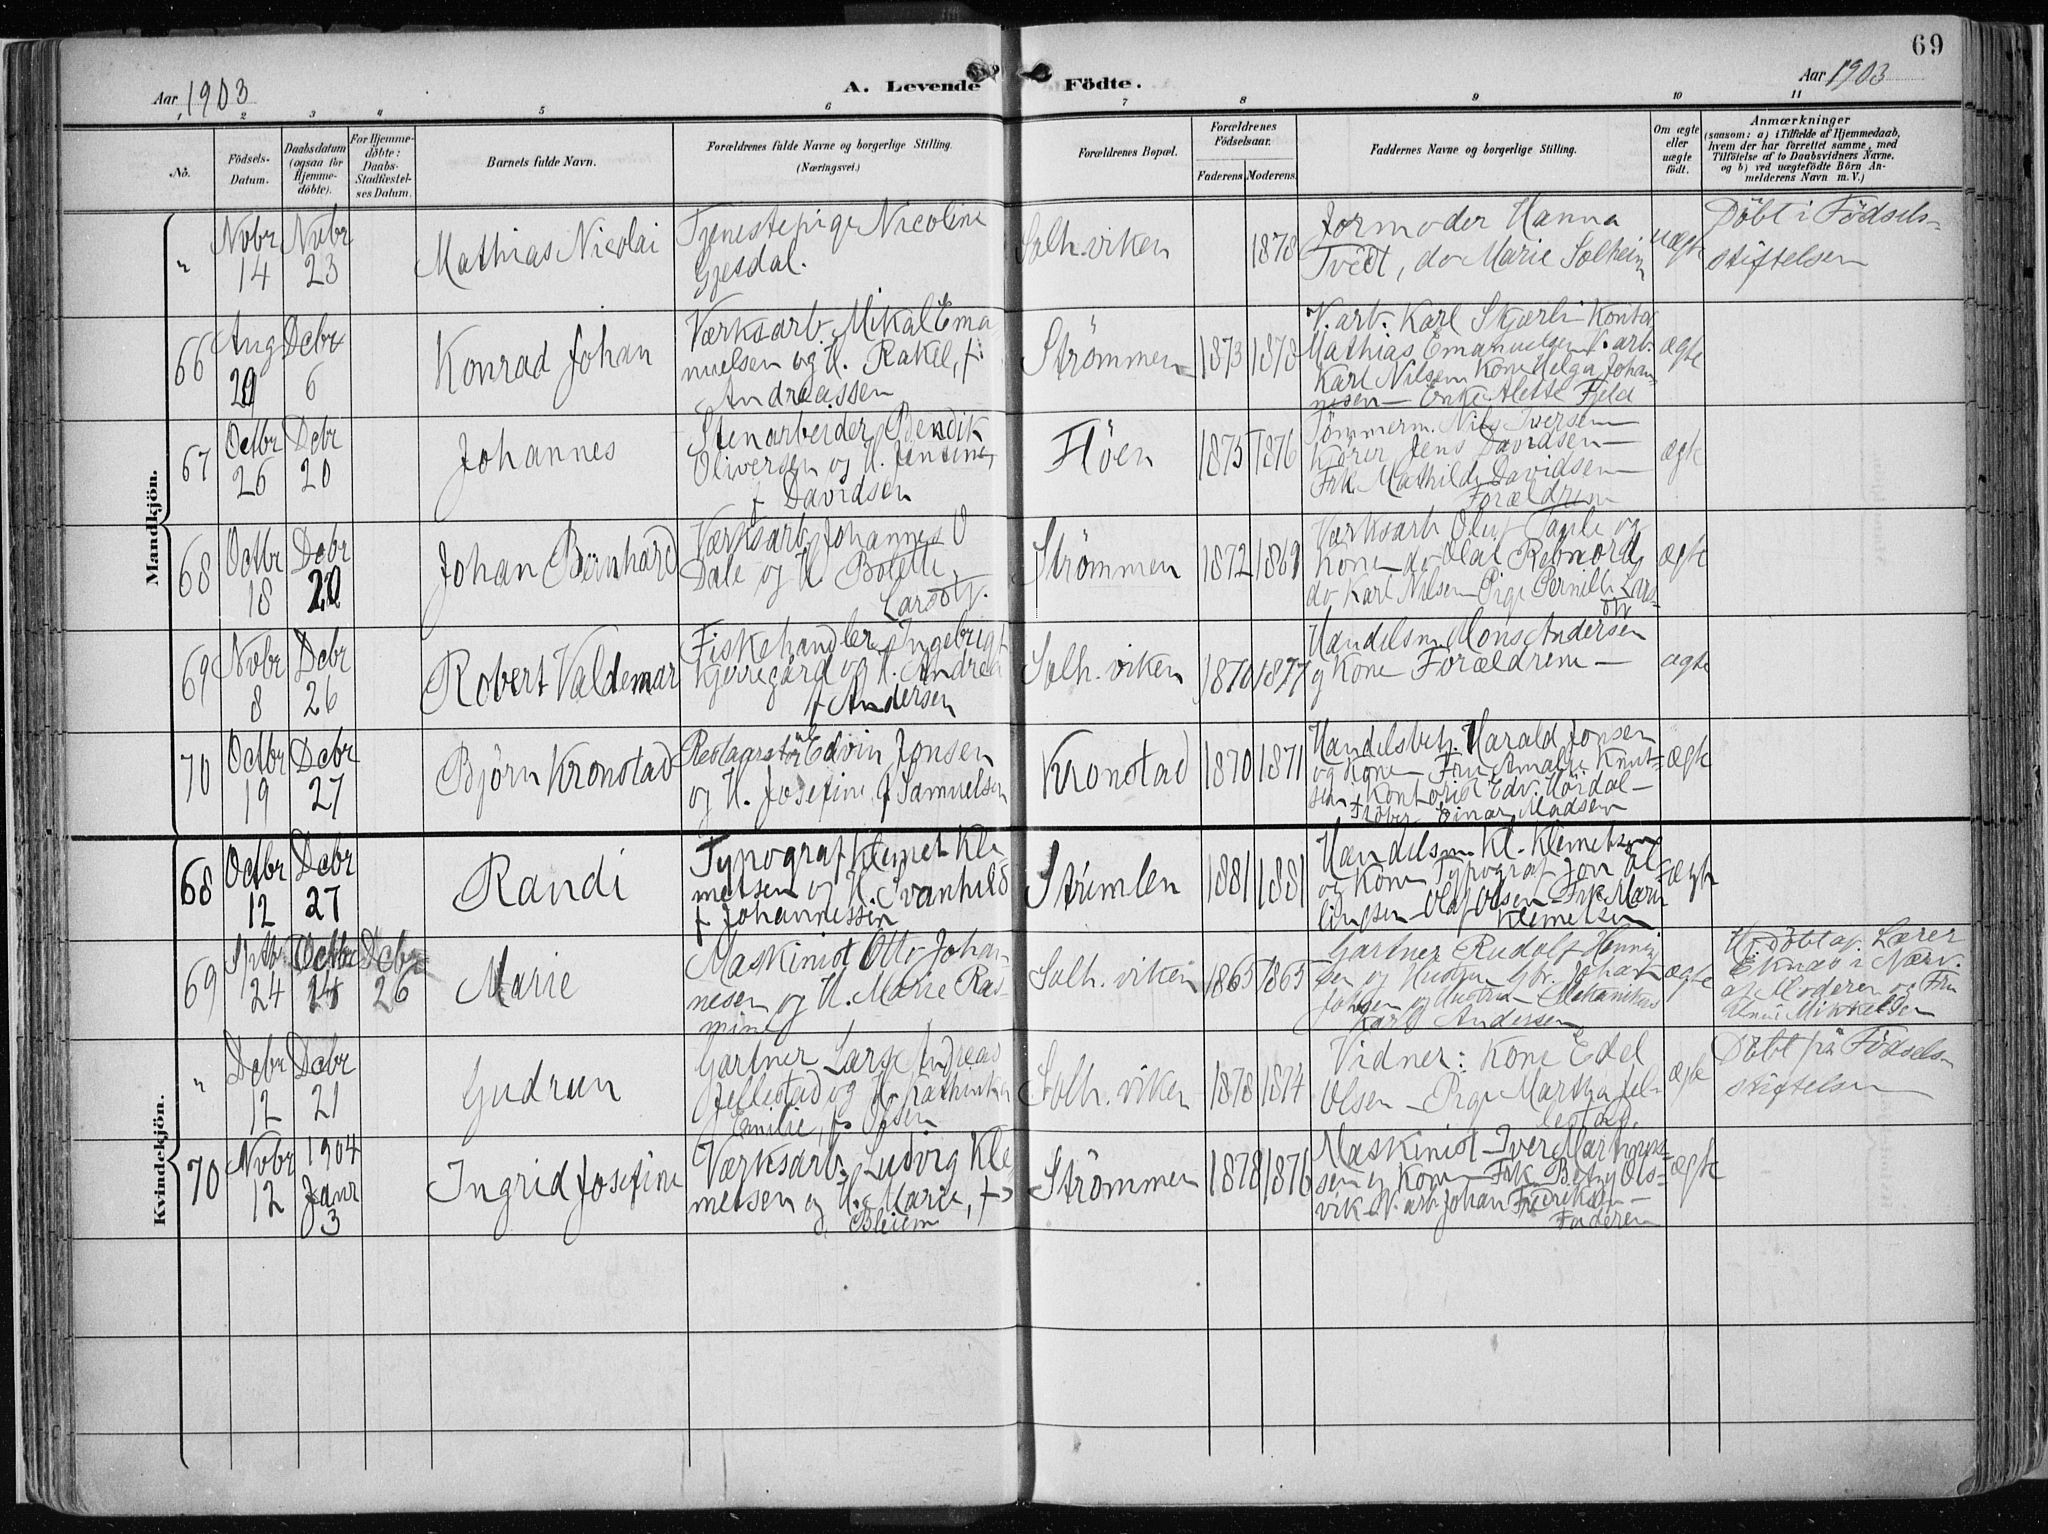 69
Aar 1903
A. Levende Födte.
Aar 1903
1 2 3 4 5 6 7 8 9 10 11
No.
Födsels-Datum.
Daabsdatum (ogsaa for Hjemme-döbte).
For Hjemme-döbte: Daabs-Stadfæstel-ses Datum.
Barnets fulde Navn.
Forældrenes fulde Navne og borgerlige Stilling. (Næringsvei.)
Forældrenes Bopæl.
Forældrenes Födselsaar.
Faderens. Moderens.
Faddernes Navne og borgerlige Stilling.
Om ægte eller uægte födt.
Anmærkninger
(saasom: a) i Tilfælde af Hjemmedaab,
hvem der har forrettet samme, med
Tilföielse af to Daabsvidners Navne,
og b) ved uægtefödte Börn An-
melderens Navn m. V.)
Mandkjön.
" Novbr 14 Novbr 23
Mathias Nicolai
Tjenestepige Nicoline
Gjesdal.
Solh.viken
1878
Jormoder Hanna
Tvedt, do Marie Solheim
uægte
Döbt i Födsels-
stiftelsen
66 Aug 29 Debr 6
Konrad Johan
Værksarb. Mikal Ema
nuelsen og H. Rakel, f.
Andreassen
Strömmen
1873 1878
V.arb. Karl Skjærli Kontor
Mathias Emanuelsen V.arb.
Karl Nilsen Kone Helga Johan-
nesen - Enke Alette Fjeld
ægte
67 Octbr 26 Debr 20
Johannes
Stenarbeider Bendik
Oliversen og H. Jensine
f Davidsen
Flöen
1875 1876
Tömmerm. Nils Iversen
Körer Jens Davidsen -
Frk. Mathilde Davidsen -
Forældrene
ægte
68 Octbr 18 Debr 20
Johan Bernhard
Værksarb. Johannes O
Dale og H Bolette
Larsdtr.
Strömmen
1872 1869
Værksarb Oluf Tante og
Kone do Olai Rebnord
do Karl Nilsen Pige Pernille Lars-
dtr
ægte
69 Novbr 8 Debr 26
Robert Valdemar
Fiskehandler Ingebrigt
Kjerregård og H. Andrea
f Andersen
Solh. viken
1870 1877
Handelsm Mons Andersen
og Kone Forældrene -
ægte
70 Octbr 19 Debr 27
Björn Kronstad
Restauratör Edvin Jonsen
og H. Josefine f Samuelsen
Kronstad
1870 1871
Handelsbetj. Harald Jonsen
og Kone - Fru Amalie Knut-
sen Kontorist Edv. Hördal -
Einar Madsen
ægte
Kvindekjön.
68 Octbr 12 Debr 27
Randi
Typograf Klemet Kle
metsen og H. Svanhild
f Johannessen
Strimlen
1881 1881
Handelsm. Kl. Klemetsen
og Kone Typograf Jon El
lingsen - Olaf Olsen - Frk Marie
Klemetsen
ægte
69 Septbr 24 Octbr 24 Debr 26
Marie
Maskinist Otto Johan-
nesen og H. Marie Ras-
mine
Solh. viken
1865 1865
Gartner Rudolf Hennig
sen og Hustru Gbr. Johan
og Hustru - Mekanikus
Karl Andersen
ægte
Hj.döbt af Lærer
Eknæs i Nærv.
af Moderen og Fru
Mikkelsen
" Debr 12 Debr 21
Gudrun
Gartner Lars Andreas
Jellestad og H. Kathinka
Emilie, f. Olsen
Solh. viken
1878 1874
Vidner: Kone Edel
Olsen - Pige Martha Jel-
lestad.
ægte
Döbt på Födsels
stiftelsen
70 Novbr 12 1904 Janr 3
Ingrid Josefine
Værksarb. Ludvig Kle
metsen og H. Marie, f.
Bleiem
Strömmen
1878 1876
Maskinist Iver Martinus-
sen og Kone - Frk Betzy Ols-
vik V. arb. Johan Fredriksen -
Faderen
ægte